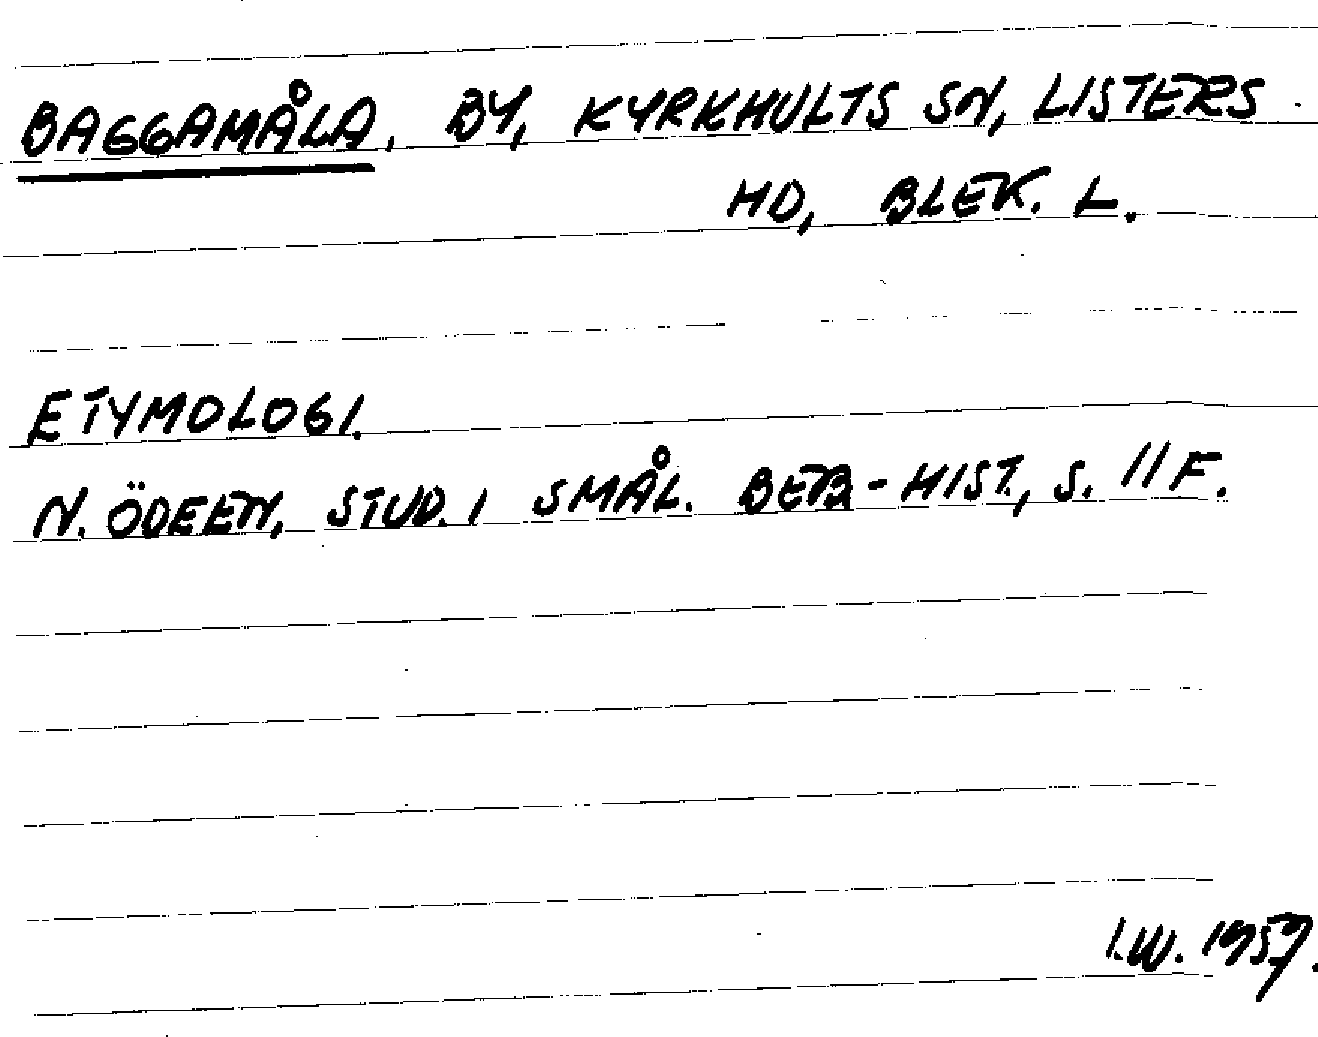 BAGGAMÅLA, BY, KYRKHULTS SN, LISTERS
HD, BLEK. L.
ETYMOLOGI.
N. ÖDEEN, STUD. I SMÅL. BEB-HIST., S. 11 F.
I.W. 1959.